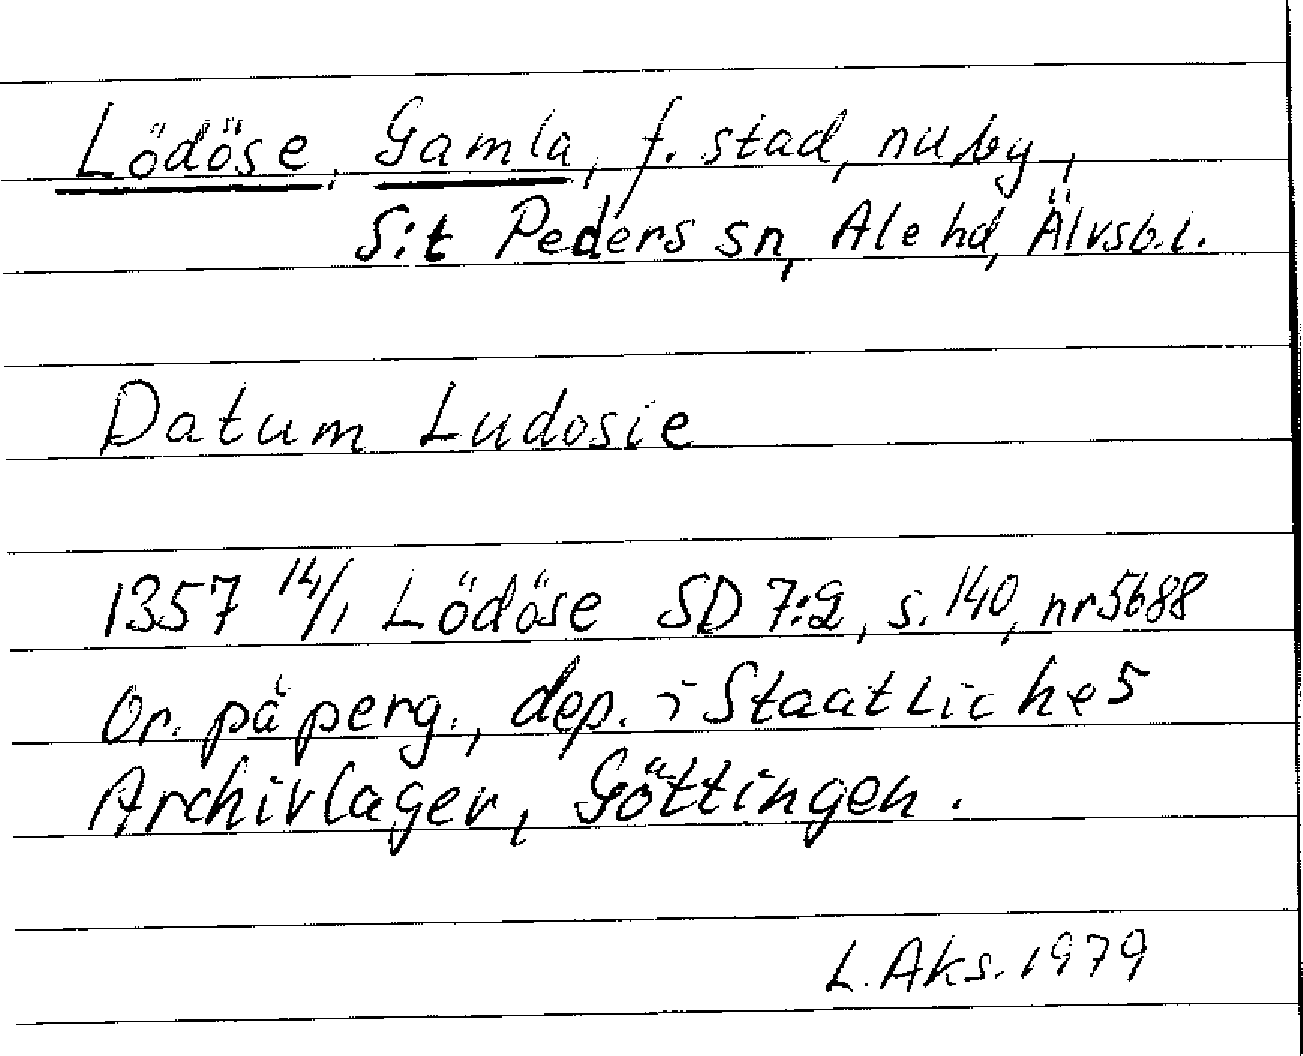 Lödöse, Gamla, f. stad, nu by,
S:t Peders sn, Ale hd, Älvsb. l.
Datum Ludosie
1357 14/1 Lödöse SD 7:2, s. 140, nr 5688
Or. på perg., dep. i Staatliches
Archivlager, Göttingen.
L. Aks. 1979